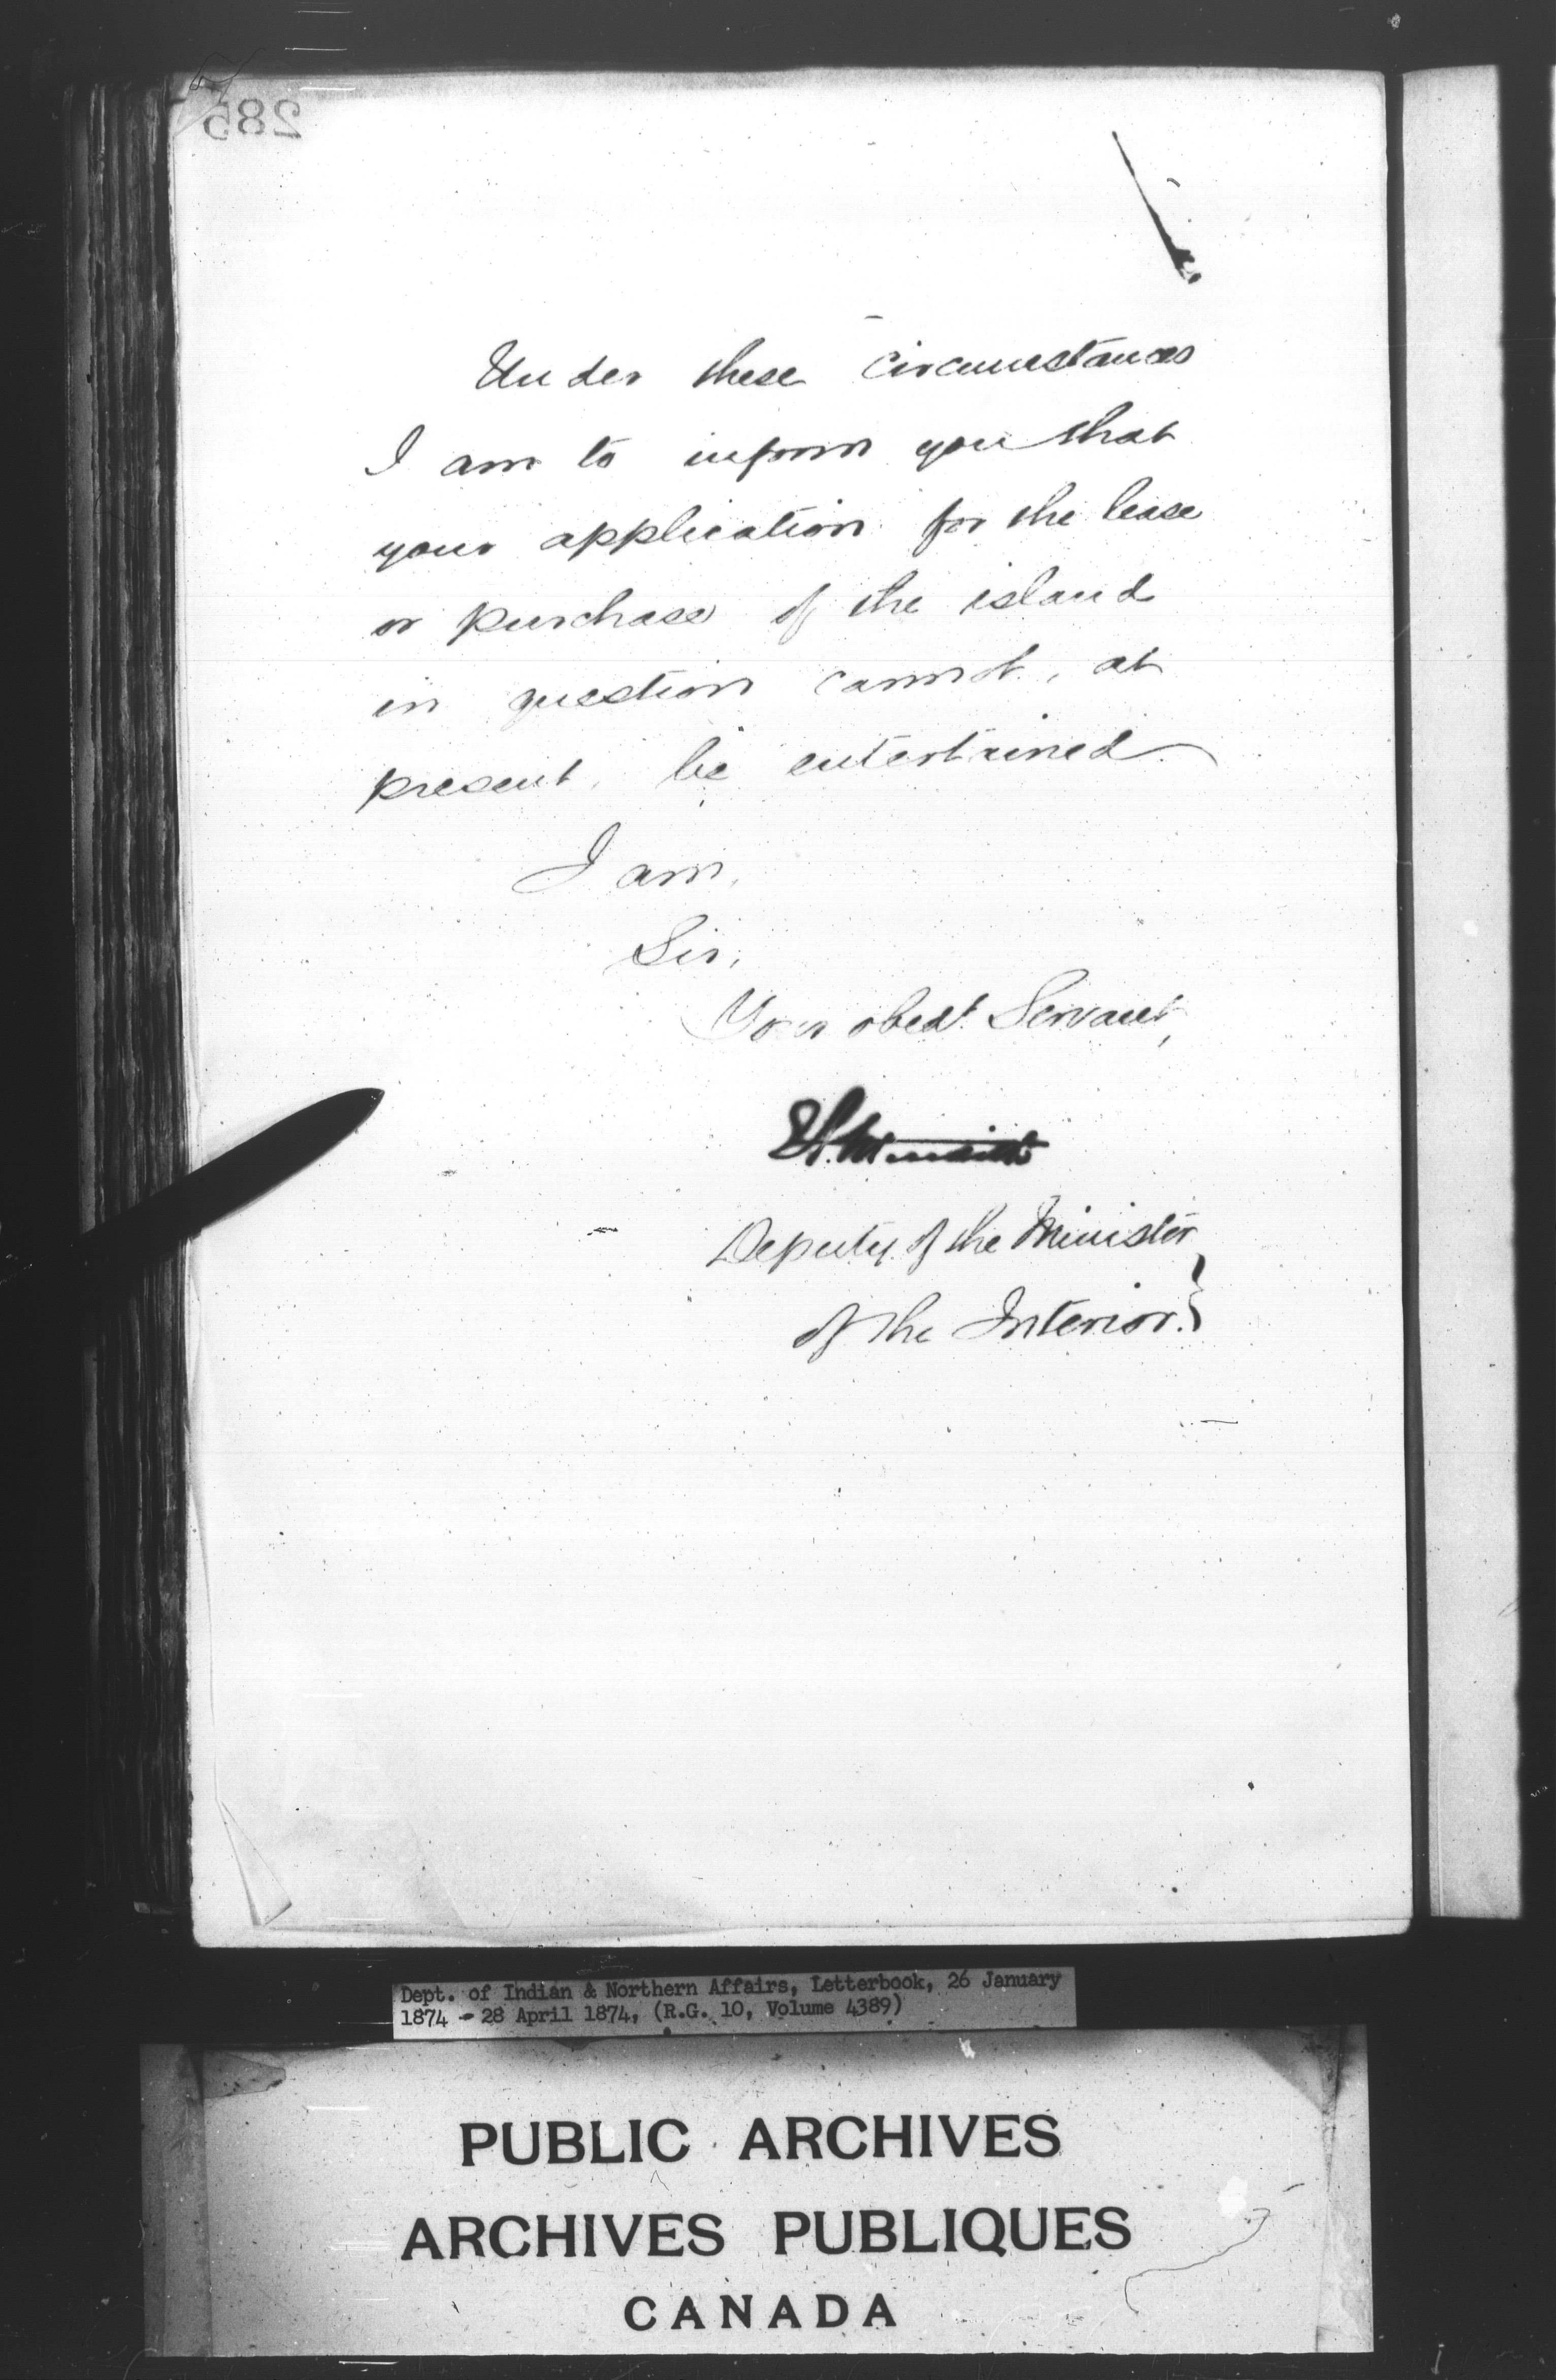 285
Under these circumstances
I am to inform you that
your application for the lease
or purchase of the island
in question cannot, at
present, be entertained.
I am,
Sir,
Your obedt. Servant,
Deputy of the Minister
of the Interior.}
Dept. of Indian & Northern Affairs, Letterbook, 26 January
1874 - 28 April 1874, (R.G. 10, Volume 4389)
PUBLIC ARCHIVES
ARCHIVES PUBLIQUES
CANADA